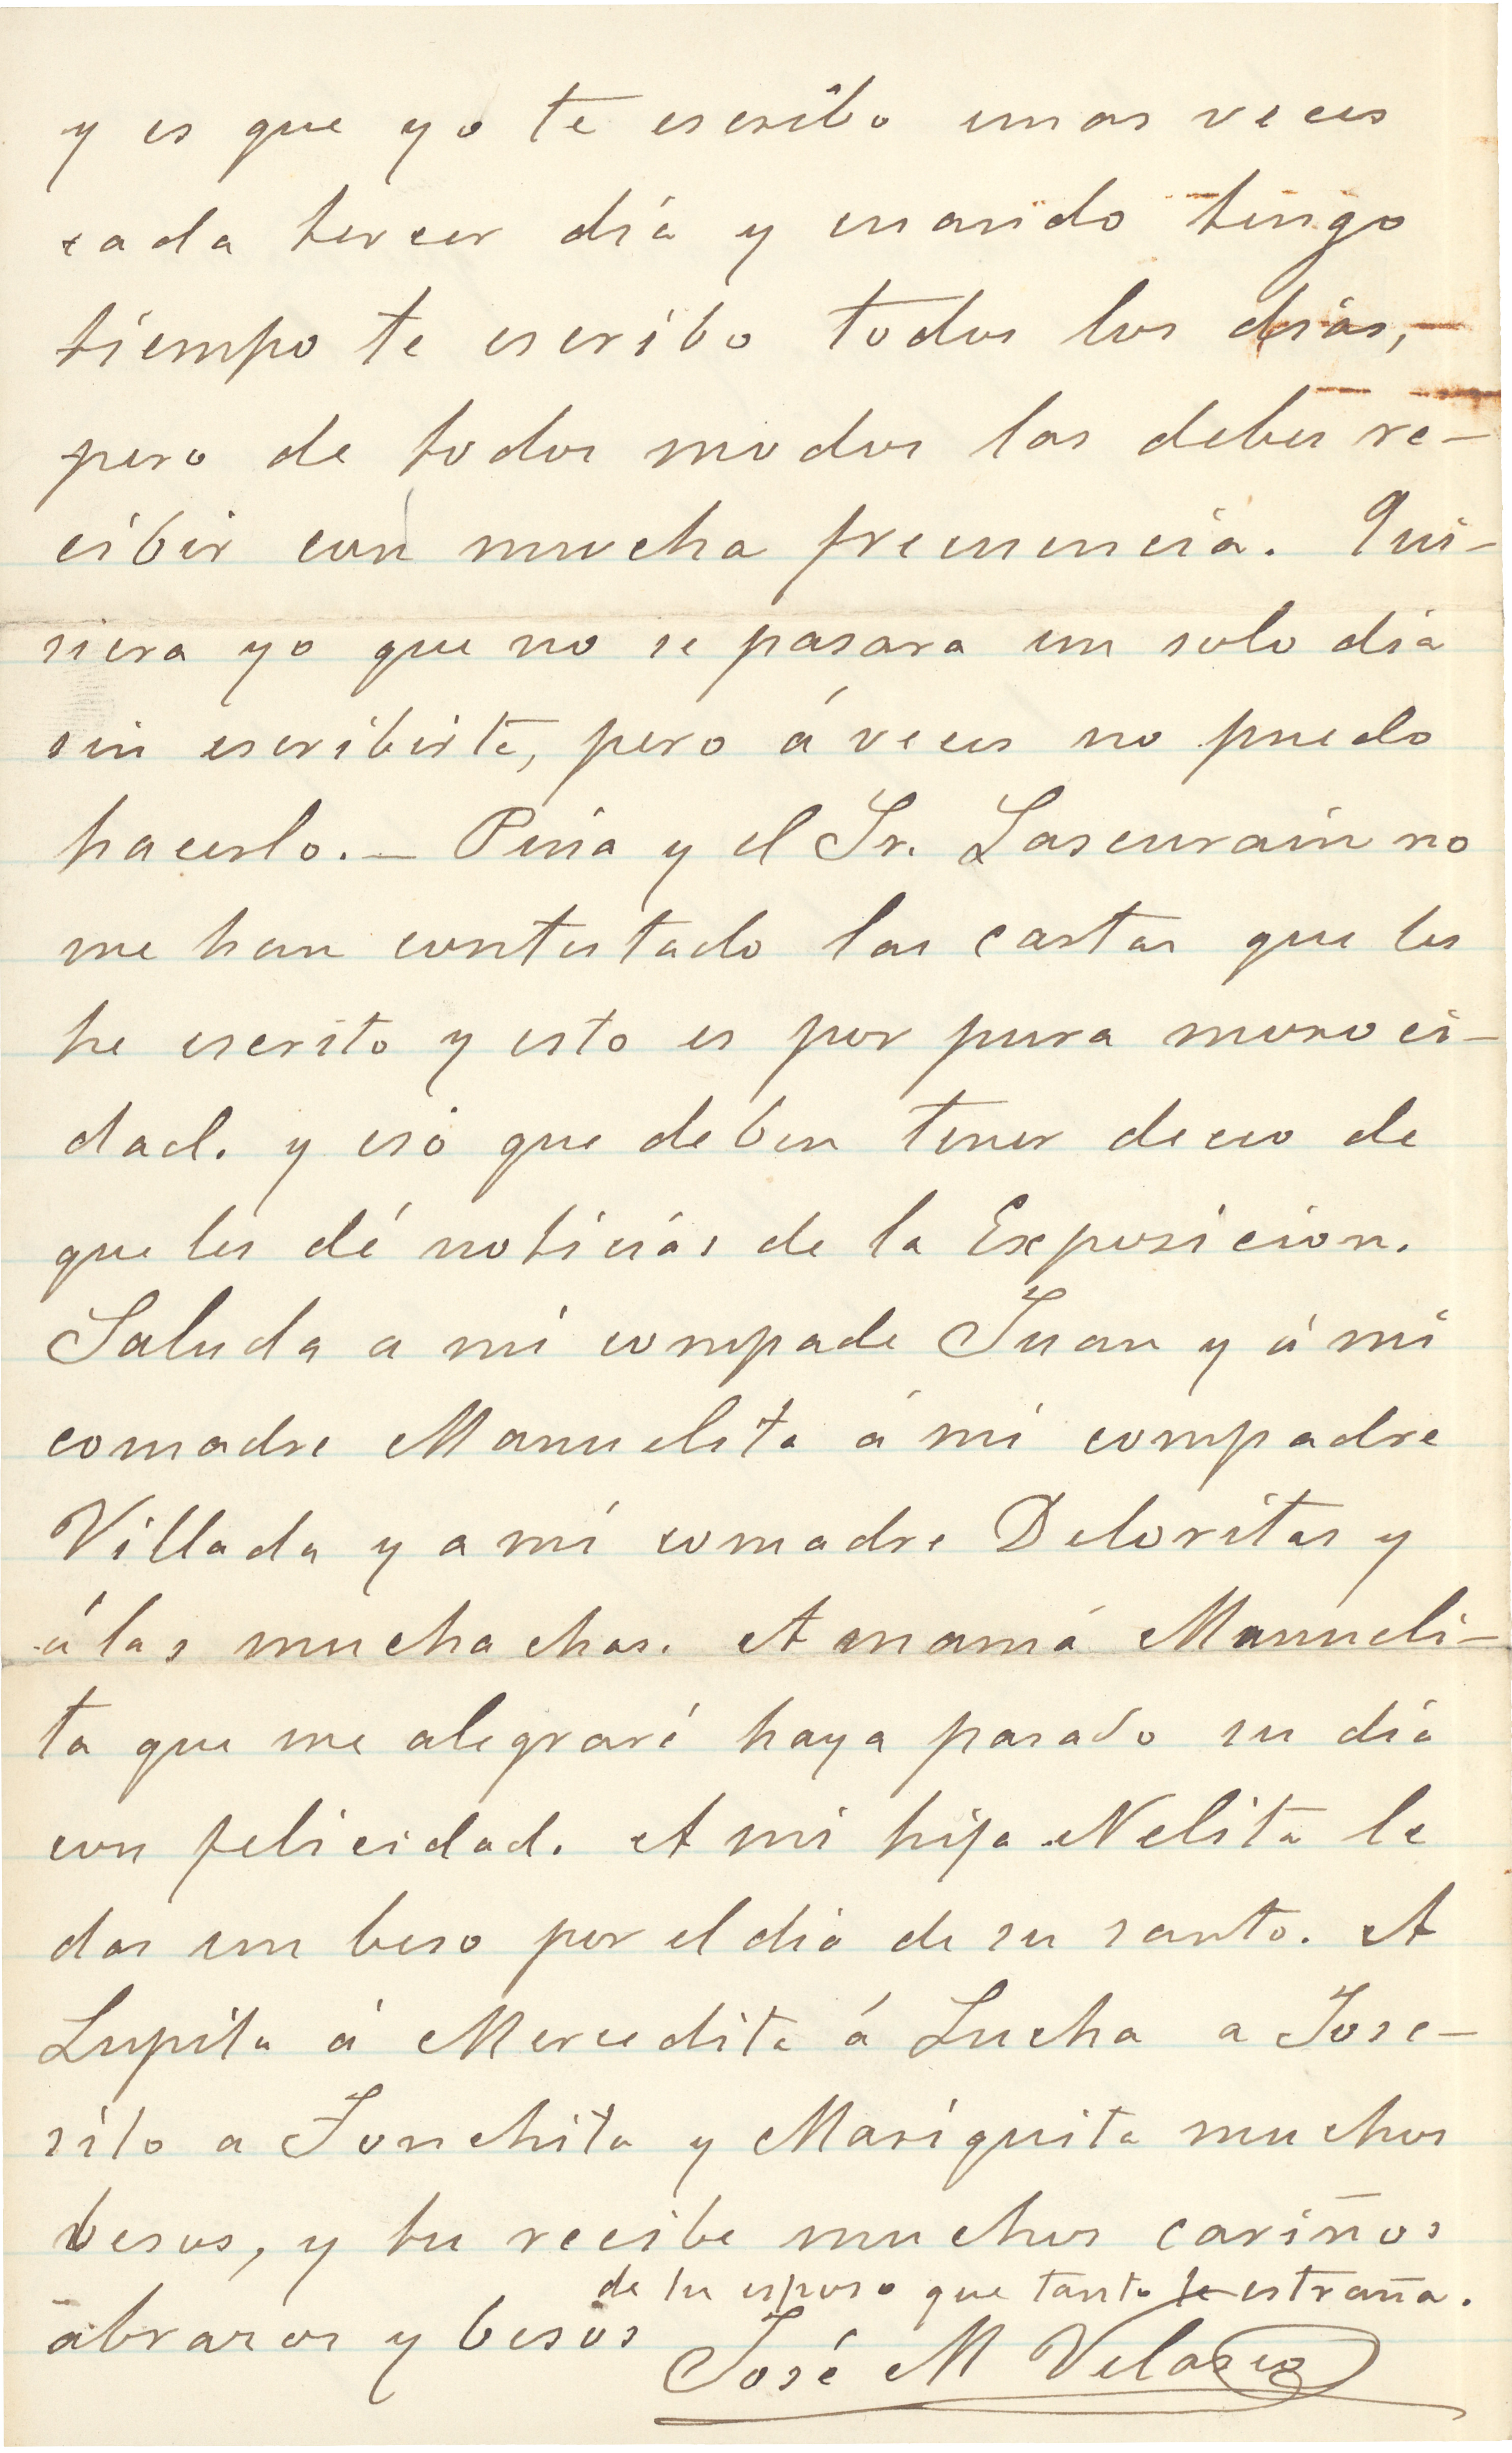 y es que yo te escribo unas veces
cada tercer día y cuando tengo
tiempo te escribo todos los días,
pero de todos modos las debes re-
cibir con mucha frecuencia. Qui-
siera yo que no se pasara un solo dia
sin escribirte, pero á veces no puedo
hacerlo. — Pina y el Sr. Lascurain no
me han contestado las cartas que les
he escrito y esto es por pura moroci-
dad. y eso que deben tener deceo de
que les dé noticias de la Exposicion.
Saluda a mi compade Juan y á mi
comadre Manuelita á mi compadre
Villada y a mi comadre Deloritas y
á las muchachas. A mamá Manueli-
ta que me alegraré haya pasado su día
con felicidad. A mi hija Nelita le
das un beso por el dia de su santo. A
Lupita á Mercedita á Lucha a Jose-
sito a Conchita y Mariquita muchos
besos, y tu recibe muchos cariños
abrazos y besos
de tu esposo que tanto te estraña.
José M Velasco